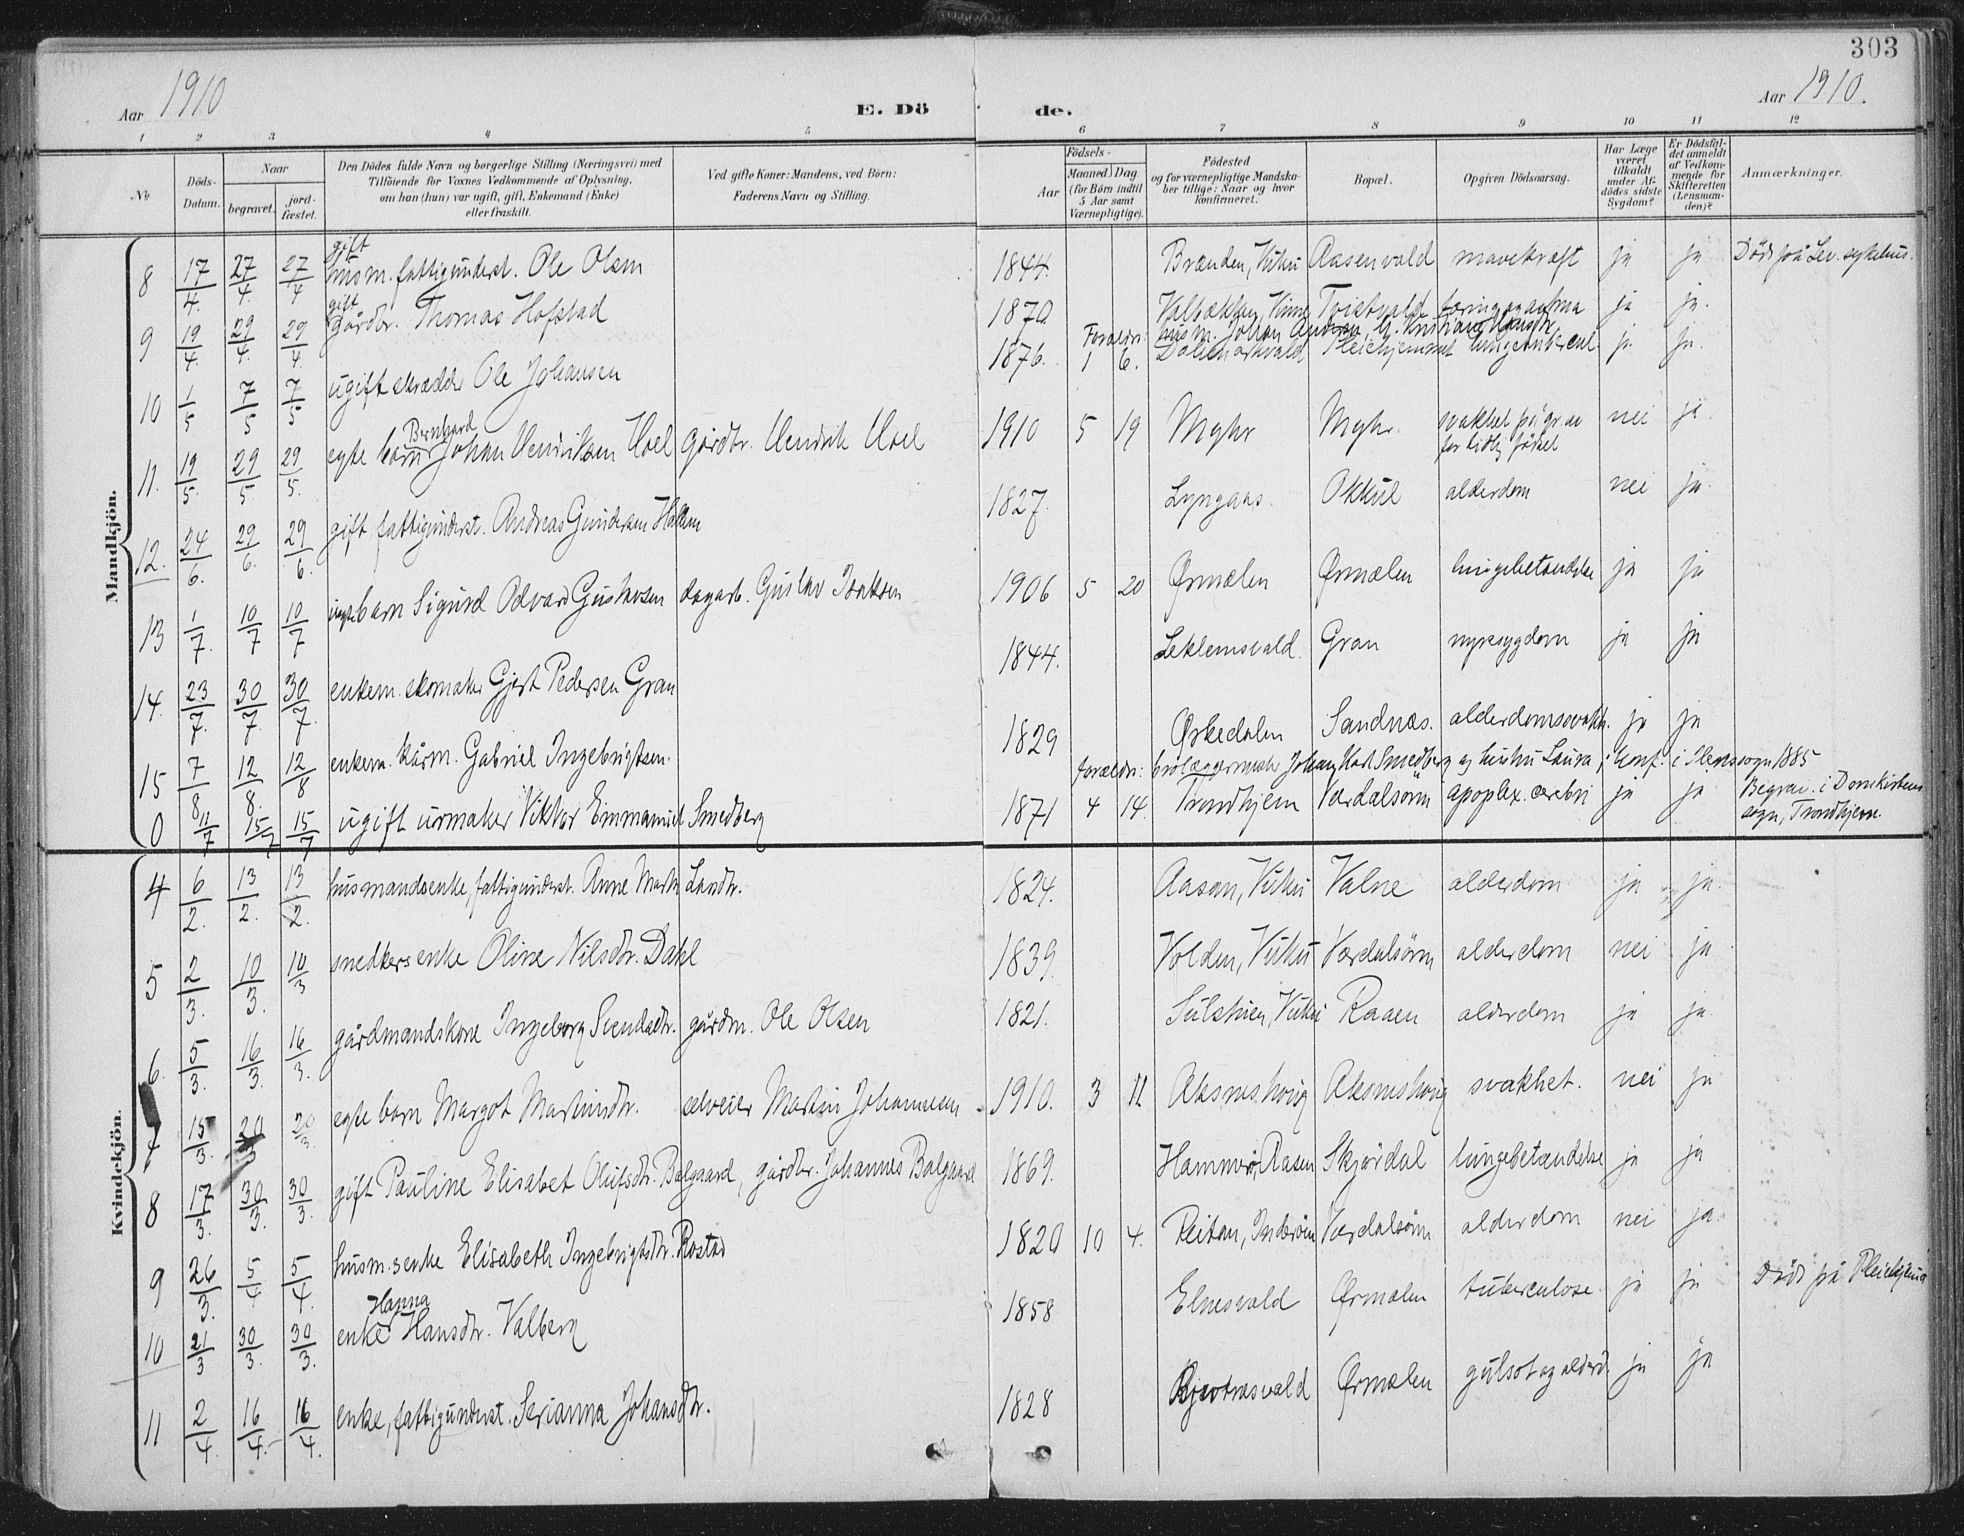 303
Aar 1910
E. Dö
de.
Aar 1910.
1 2 3 4 5 6 7 8 9 10 11 12
No
Döds-Datum.
Naar
begravet.
jord-fæstet.
Den Dödes fulde Navn og borgerlige Stilling (Næringsvei) med
Tilföiende for Voxnes Vedkommende af Oplysning,
om han (hun) var ugift, gift, Enkemand (Enke)
eller fraskilt.
Ved gifte Koner: Mandens, ved Börn:
Faderens Navn og Stilling.
Födsels-
Aar
Maaned Dag
(for Börn indtil
5 Aar samt
Værnepligtige).
Födested
og for værnepligtige Mandska-
ber tillige: Naar og hvor
konfirmeret.
Bopæl.
Opgiven Dödsaarsag.
Har Læge
været
tilkaldt
under Af-
dödes sidste
Sygdom?
Er Dödsfal-
det anmeldt
af Vedkom-
mende for
Skifteretten
(Lensman-
den)?
Anmærkninger.
Mandkjön.
8 17/4. 27/4. 27/4 gift husm. fattigunderst. Ole Olsen 1844. Branden, Vuku Aasenvald mavekræft ja ja Död på Lev. sykehus.
9 19/4 29/4. 29/4. gift gårdbr. Thomas Hofstad 1870. Tvistvald ja ja.
Forældre: husm. Johan
10 1/5 7/5 7/5 ugift skrædder Ole Johansen 1876. 1 6. Pleiehjemmet ja ja.
11. 19/5. 29/5 29/5. egte barn Bernhard Johan Henriksen Hoel gårdbr. Hendrik Hoel 1910 5 19 Myhr Myhr. svakhet på gr. av for tidlig fødsel nei ja.
12. 24/6. 29/6. 29/6. gift fattigunderst. Andreas Gundersen Hallem 1827. Lyngaas. Okkul alderdom nei ja.
13 1/7. 10/7 10/7 barn Sigurd Odvard Gustavsen dagarb. Gustav Isaksen 1906 5 20 Ørmælen Ørmælen lungebetændelse ja ja
14. 23/7. 30/7. 30/7. enkem. skomaker Gjert Pedersen Gran 1844. Leklemsvald. Gran nyresygdom ja ja
15 7/8 12/8. 12/8 enkem. kårm. Gabriel Ingebrigtsen. 1829 Ørkedalen Sandnæs. alderdomssvakh. ja ja
Forældre: Johan Karl Smedberg og hustru Laura; konf. i Ilens sogn 1885
0 11/7 15/7 15/7 ugift urmaker Viktor Emmanuel Smedberg 1871 4 14. Trondhjem Værdalsøren apoplex. cerebri ja ja Begrav. i Domkirkens sogn, Trondhjem.
Kvindekjön.
4 6/2. 13/2. 13/2. husmandsenke, fattigunderst. Anne Marta Larsdtr. 1824. Aasan, Vuku Valne alderdom ja ja.
5 2/3. 10/3. 10/3 snedkersenke Oline Nilsdtr. Dahl 1839. Volden, Vuku Værdalsøren alderdom nei ja
6. 5/3. 16/3. 16/3. gårdmandskone Ingeborg Svendsdtr. gårdm. Ole Olsen 1821. Sulstuen, Vuku Raaen alderdom ja ja
7 15/3. 20/3 20/3. egte barn Margot Martinsdtr. selveier Martin Johannesen 1910. 3 11 Aksneshaug Aksneshaug svakhet. nei ja
8 17/3. 30/3. 30/3. gift Pauline Elisabet Olufsdtr. Balgaard, gårdbr. Johannes Balgaard 1869. Hammer, Aasen Skjørdal lungebetændelse ja ja
9 26/3. 5/4 5/4. husm.s enke Elisabeth Ingebrigtsdtr. Rostad 1820 10 4. Reitan, Inderøen Værdalsøren alderdom nei ja.
10 21/3 30/3. 30/3. enke Hanna Hansdtr. Valberg 1858 Elnesvald Ørmælen tuberculose. ja ja Död på Pleiehjem
11 2/4 16/4. 16/4. enke, fattigunderst. Serianna Johansdtr. 1828 Ørmælen gulsot og alderd. ja ja